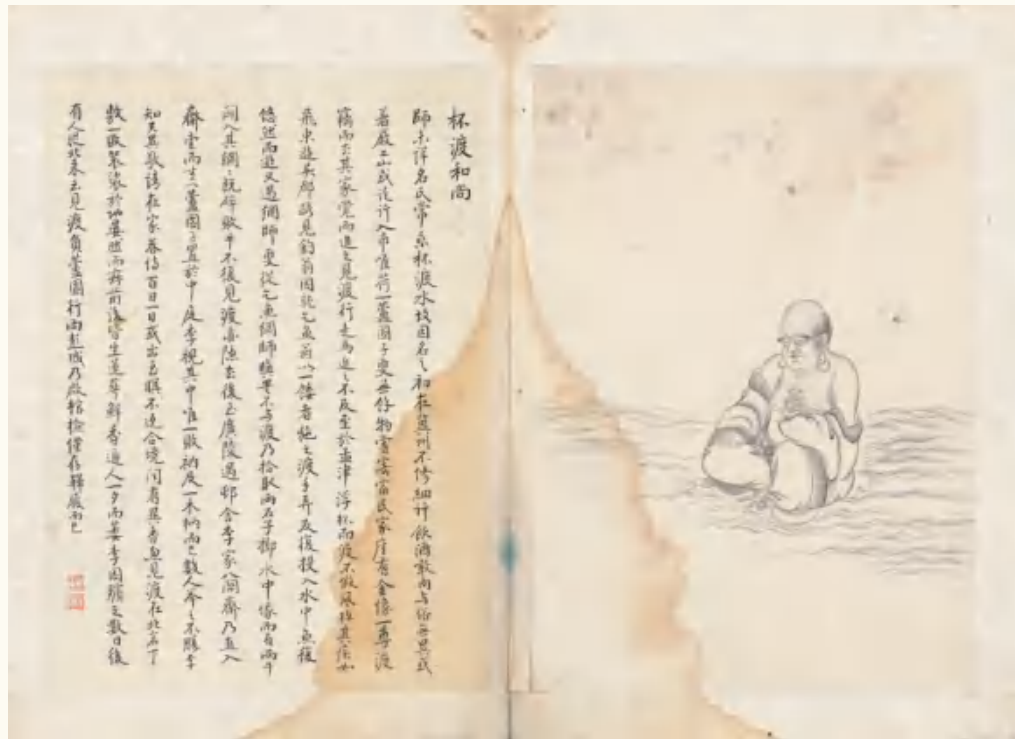 杯渡和尚
師未詳名氏常乘杯渡水故因名之初在冀州不修細行飲酒噉肉与俗無異或
著屐上山或徒行入市唯荷一蘆圌子更無餘物嘗寄富民家座有金像一尊渡
竊而去其家覺而追之見渡行走馬追之不及至於孟津浮杯而渡不假風棹其疾如
飛東遊吳郡路見釣翁因就乞魚翁以一餒者施之渡手弄反復投入水中魚復
悠然而逝又遇網師更從乞魚網師瞋罵不与渡乃拾取兩石子擲水中俄而有兩牛
鬥入其網網既碎敗牛不復見渡亦隱去後至廣陵遇村舍李家八關齋乃直入
齋堂而坐以蘆圌子置於中庭李視其中唯一敗衲及一木杯而已數人舉之不勝李
知其異敬請在家養侍百日一日出至暝不返合境聞有異香亟見渡在北岩下
敷一敗袈裟於地晏然而寂前後皆生蓮華鮮香逼人一夕而萎李因殯之數日後
有人從北來云見渡負蘆圌行向彭城乃啟棺檢僅存鞋履而已